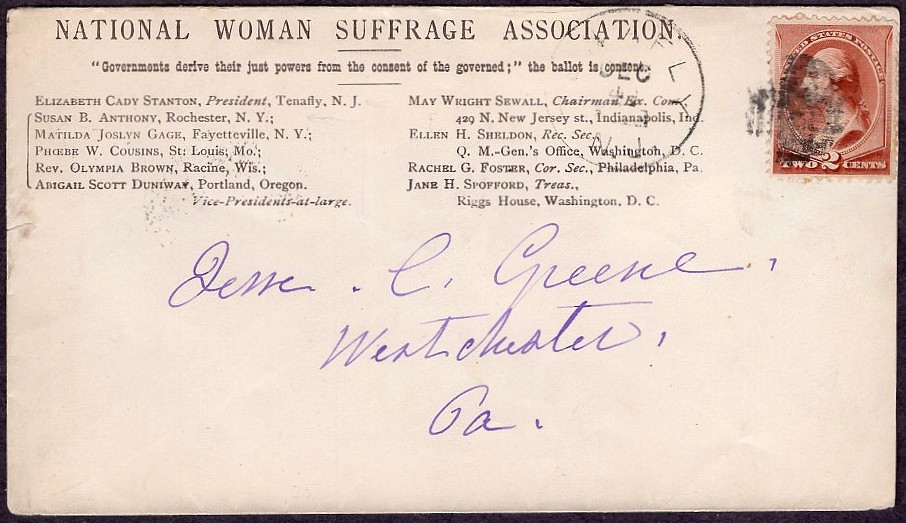 NATIONAL WOMAN SUFFRAGE ASSOCIATION.
"Governments derive their just powers from the consent of the governed;" the ballot is consent.
ELIZABETH CADY STANTON, President, Tenafly, N. J.
SUSAN B. ANTHONY, Rochester, N. Y.;
MATILDA JOSLYN GAGE, Fayetteville, N. Y.;
PHŒBE W. COUSINS, St: Louis, Mo.;
REV. OLYMPIA BROWN, Racine, Wis.;
ABIGAIL SCOTT DUNIWAY, Portland, Oregon.
Vice-Presidents-at-large.
MAY WRIGHT SEWALL, Chairman Ex. Com.
429 N. New Jersey st., Indianapolis, Ind.
ELLEN H. SHELDON, Rec. Sec.,
Q. M.-Gen.'s Office, Washington, D. C.
RACHEL G. FOSTER, Cor. Sec., Philadelphia, Pa.
JANE H. SPOFFORD, Treas.,
Riggs House, Washington, D. C.
DEC
N.J.
UNITED STATES POSTAGE
TWO 2 CENTS
Jesse . C. Greene,
Westchester,
Pa.